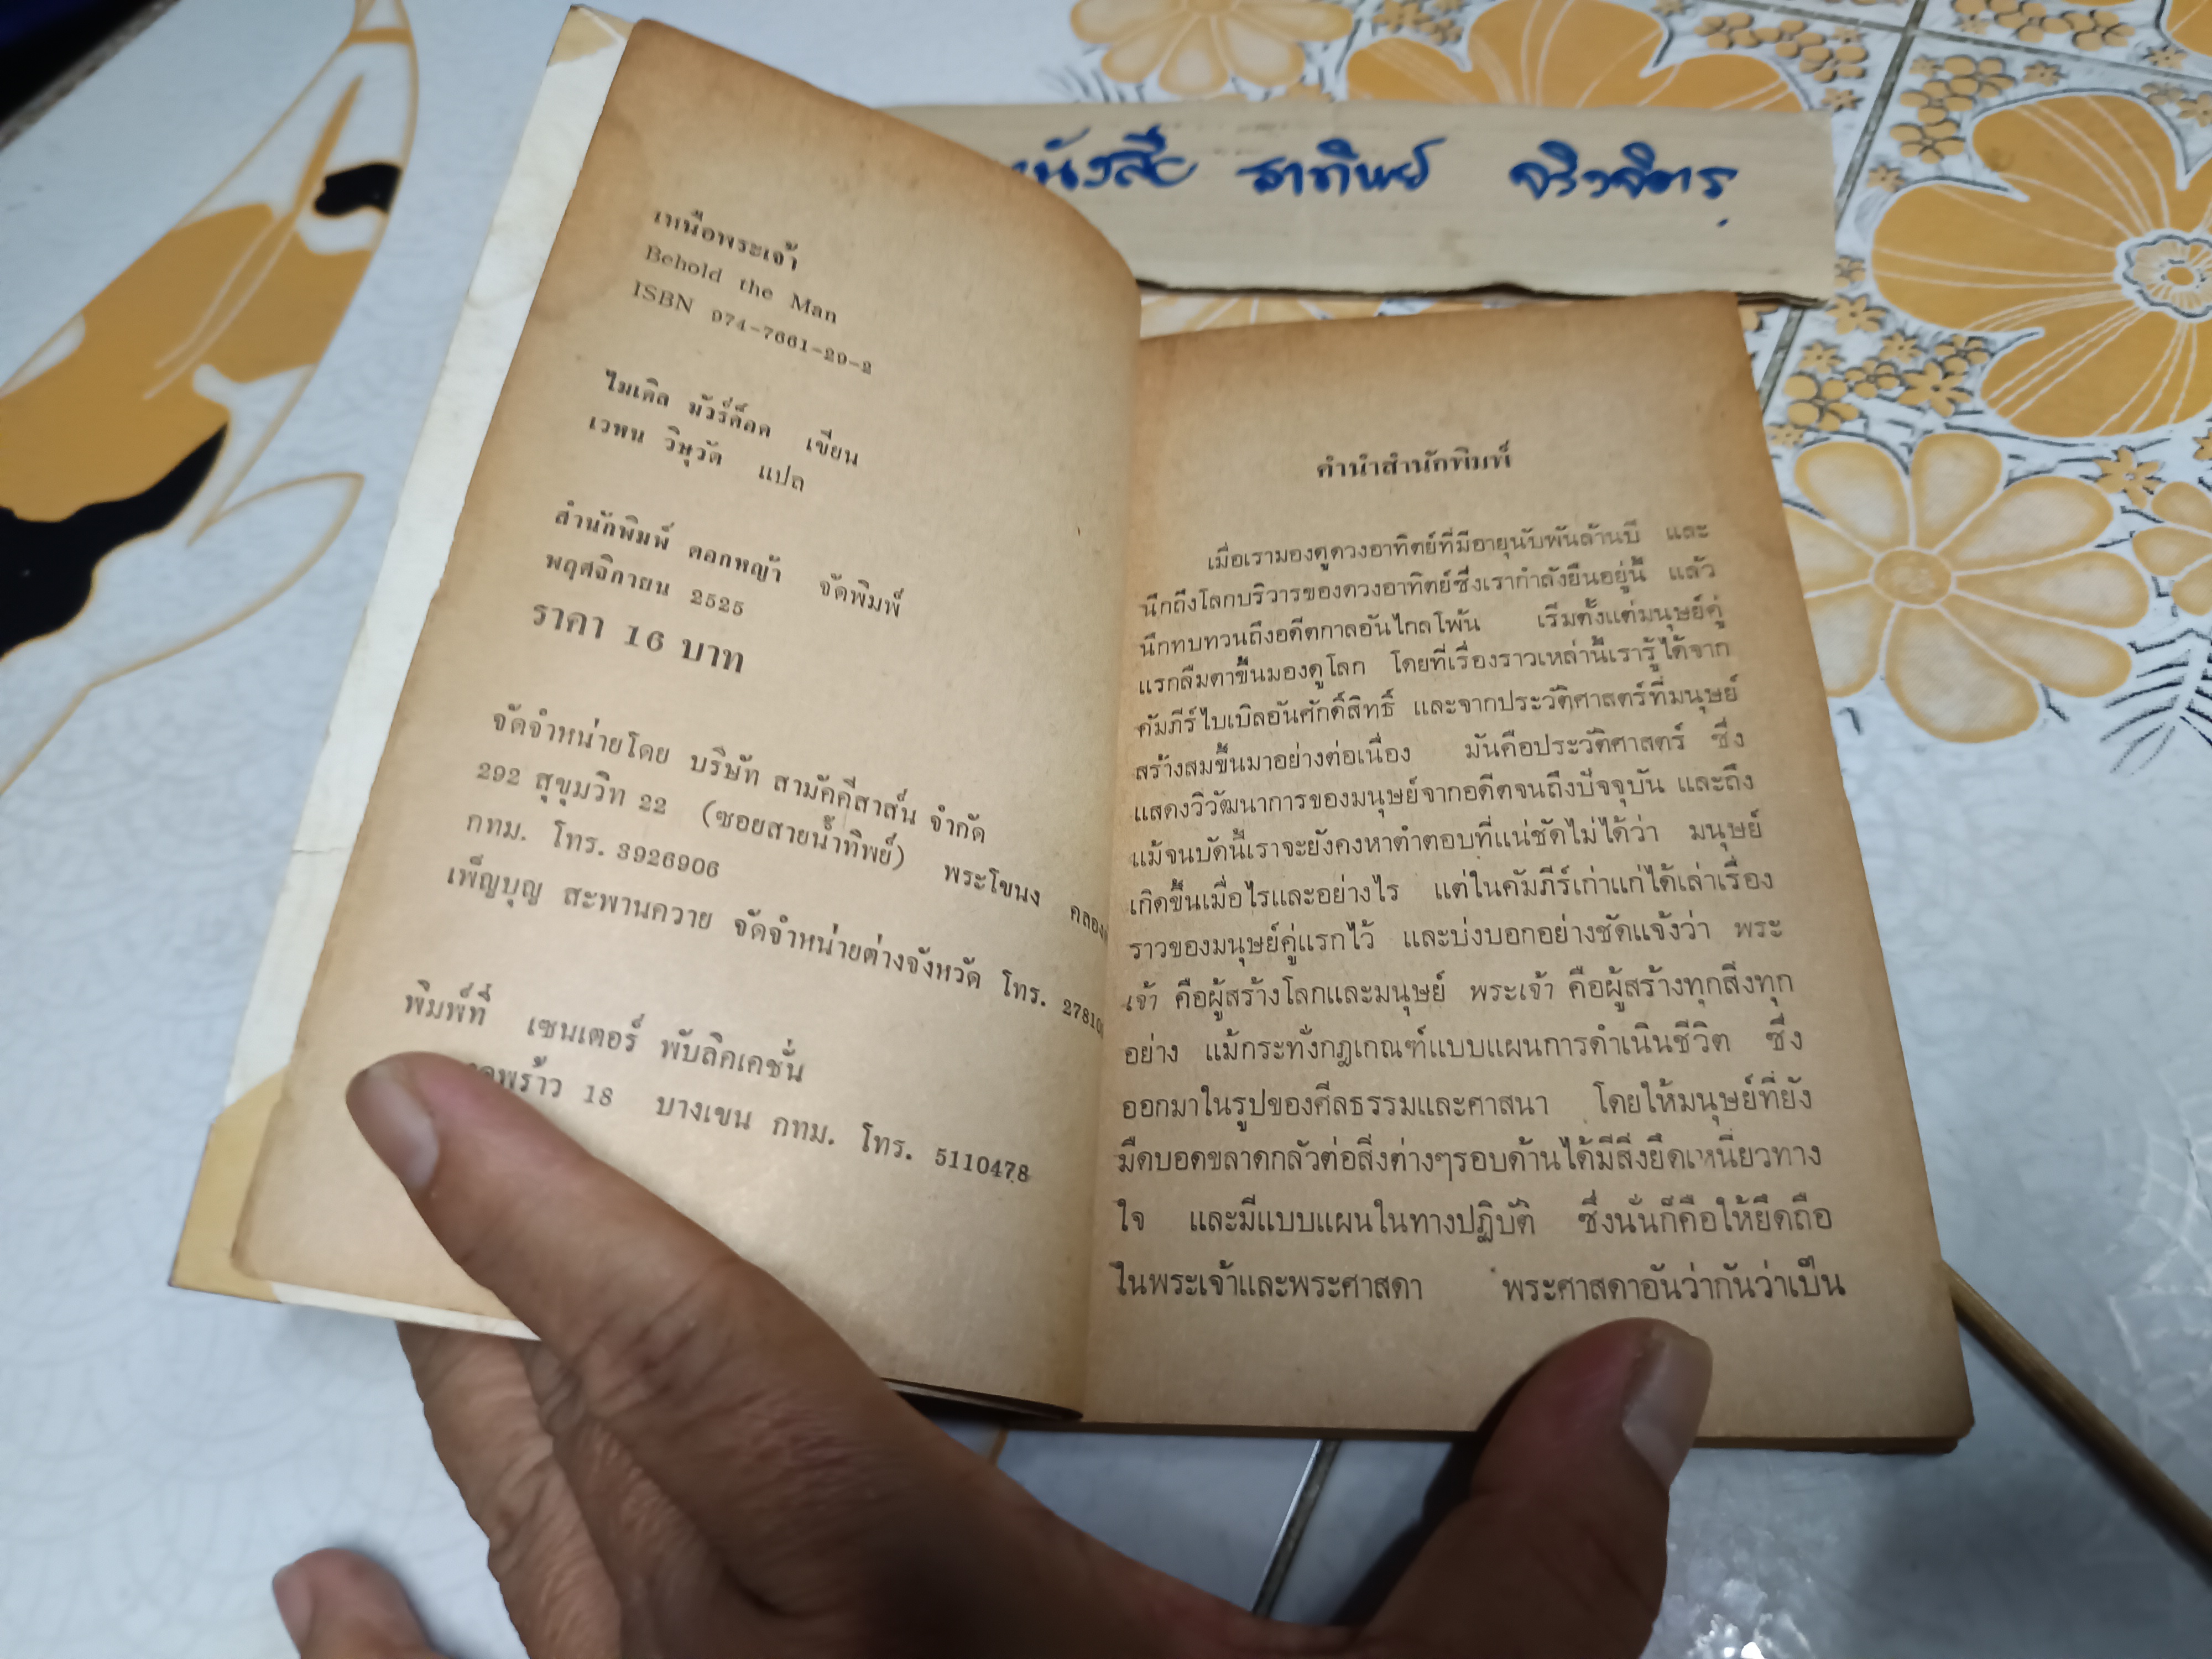 เหนือพระเจ้า
Behold the Man
ISBN 974-7661-20-2
ไมเคิล มัวร์ค็อค เขียน
เวหน วิษุวัต แปล
สำนักพิมพ์ ดอกหญ้า จัดพิมพ์
พฤศจิกายน 2525
ราคา 16 บาท
จัดจำหน่ายโดย บริษัท สามัคคีสาส์น จำกัด
292 สุขุมวิท 22 (ซอยสายน้ำทิพย์) พระโขนง
กทม. โทร. 3926906
เพ็ญบุญ สะพานควาย จัดจำหน่ายต่างจังหวัด โทร.
พิมพ์ที่ เซนเตอร์ พับลิคเคชั่น
18 บางเขน กทม. โทร. 5110478
คำนำสำนักพิมพ์
เมื่อเรามองดูดวงอาทิตย์ที่มีอายุนับพันล้านปี และ
นึกถึงโลกบริวารของดวงอาทิตย์ซึ่งเรากำลังยืนอยู่นี้ แล้ว
นึกทบทวนถึงอดีตกาลอันไกลโพ้น เริ่มตั้งแต่มนุษย์คู่
แรกลืมตาขึ้นมองดูโลก โดยที่เรื่องราวเหล่านี้เรารู้ได้จาก
คัมภีร์ไบเบิลอันศักดิ์สิทธิ์ และจากประวัติศาสตร์ที่มนุษย์
สร้างสมขึ้นมาอย่างต่อเนื่อง มันคือประวัติศาสตร์ ซึ่ง
แสดงวิวัฒนาการของมนุษย์จากอดีตจนถึงปัจจุบัน และถึง
แม้จนบัดนี้เราจะยังคงหาคำตอบที่แน่ชัดไม่ได้ว่า มนุษย์
เกิดขึ้นเมื่อไรและอย่างไร แต่ในคัมภีร์เก่าแก่ได้เล่าเรื่อง
ราวของมนุษย์คู่แรกไว้ และบ่งบอกอย่างชัดแจ้งว่า พระ
เจ้า คือผู้สร้างโลกและมนุษย์ พระเจ้า คือผู้สร้างทุกสิ่งทุก
อย่าง แม้กระทั่งกฎเกณฑ์แบบแผนการดำเนินชีวิต ซึ่ง
ออกมาในรูปของศีลธรรมและศาสนา โดยให้มนุษย์ที่ยัง
มืดบอดขลาดกลัวต่อสิ่งต่างๆรอบด้านได้มีสิ่งยึดเหนี่ยวทาง
ใจ และมีแบบแผนในทางปฏิบัติ ซึ่งนั่นก็คือให้ยึดถือ
ในพระเจ้าและพระศาสดา พระศาสดาอันว่ากันว่าเป็น